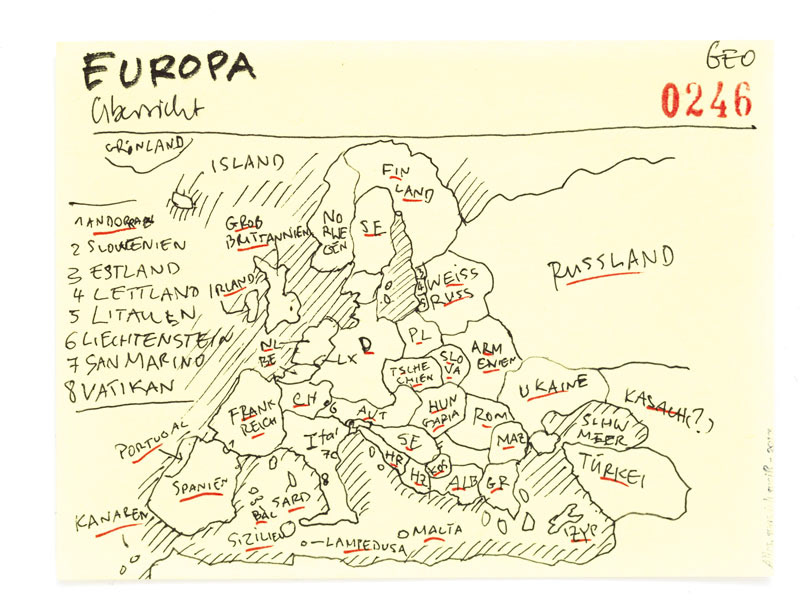 EUROPA
Übersicht
GEO
0246
GRÖNLAND
ISLAND
FIN
LAND
NO
RWE
GEN
SE
GROß
BRITTANNIEN
IRLAND
1 ANDORRA
2 SLOWENIEN
3 ESTLAND
4 LETTLAND
5 LITAUEN
6 LIECHTENSTEIN
7 SAN MARINO
8 VATIKAN
3
4
5
WEISS
RUSS
RUSSLAND
NL
BE
LX
D
PL
TSCHE
CHIEN
SLO
VA
ARM
ENIEN
UKAINE
KASACHS(?)
FRANK
REICH
CH
6
AUT
HUN
GARIA
ROM
MAZ
SCHW
MEER
TÜRKEI
PORTUGAL
SPANIEN
1
Ital
7
8
2
SE
HR
HZ
KOS
ALB
GR
KANAREN
BAL
SARD
SIZILIEN
LAMPEDUSA
MALTA
ZYP